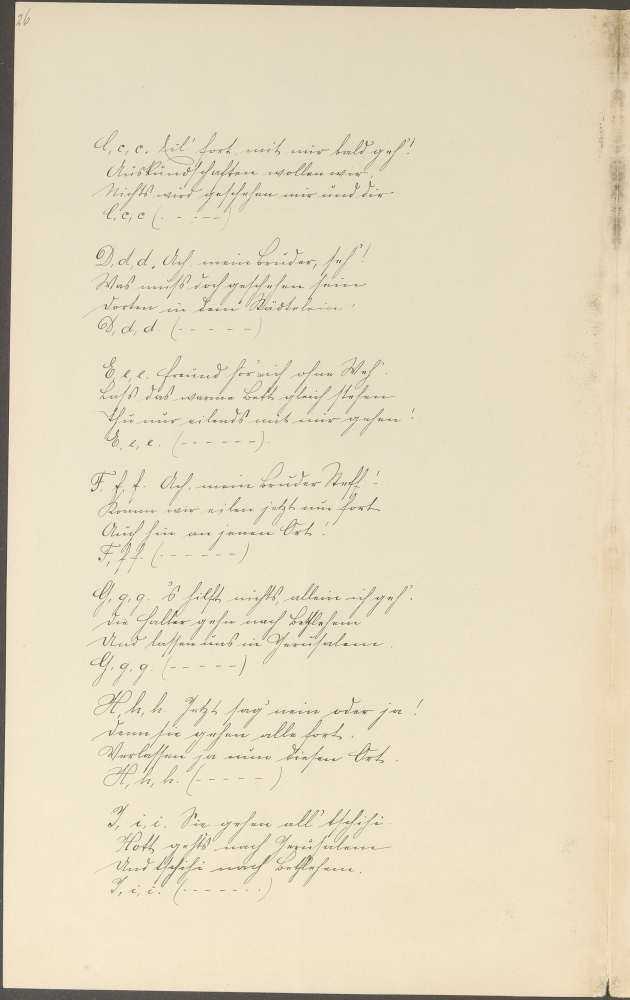 26
C, c, c. Eil' fort mit mir bald geh'!
Auskundschaften wollen wir.
Nichts wird geschehen mir und dir
C, c, c (. - . - - -)
D, d, d. Ach, mein Bruder, seh'!
Was muß doch geschehen sein
Dorten in dem Städtelein.
D, d, d. (- - - - -)
E, e, e. Freund hör mich ohne Weh'.
Laß das warme Bett gleich stehen
Thu nur eilends mit mir gehen!
E, e, e. (- - - - - -).
F, f, f. Ach, mein Bruder Steff'!
Komm wir eilen jetzt nur fort
Auch hin an jenen Ort!
F, f, f. (- - - - - -)
G, g, g. 's hilft nichts, allein ich geh'.
Die Halter gehn nach Bethlehem
Und lassen uns in Jerusalem.
G, g, g. (- - - - -)
H, h, h. Jetzt sag' nein oder ja!
Denn sie gehen alle fort.
Verlassen ja nun diesen Ort.
H, h, h. (- - - - - )
I, i, i. Sie gehen all' tschihi
Hott geht's nach Jerusalem
Und tschihi nach Bethlehem.
I, i, i. (- - - - - . .)